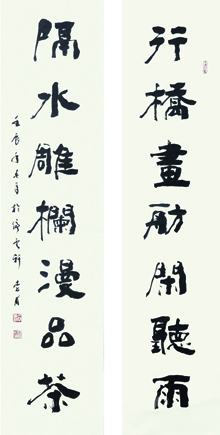 行橋畫舫閑聽雨
隔水雕欄漫品茶